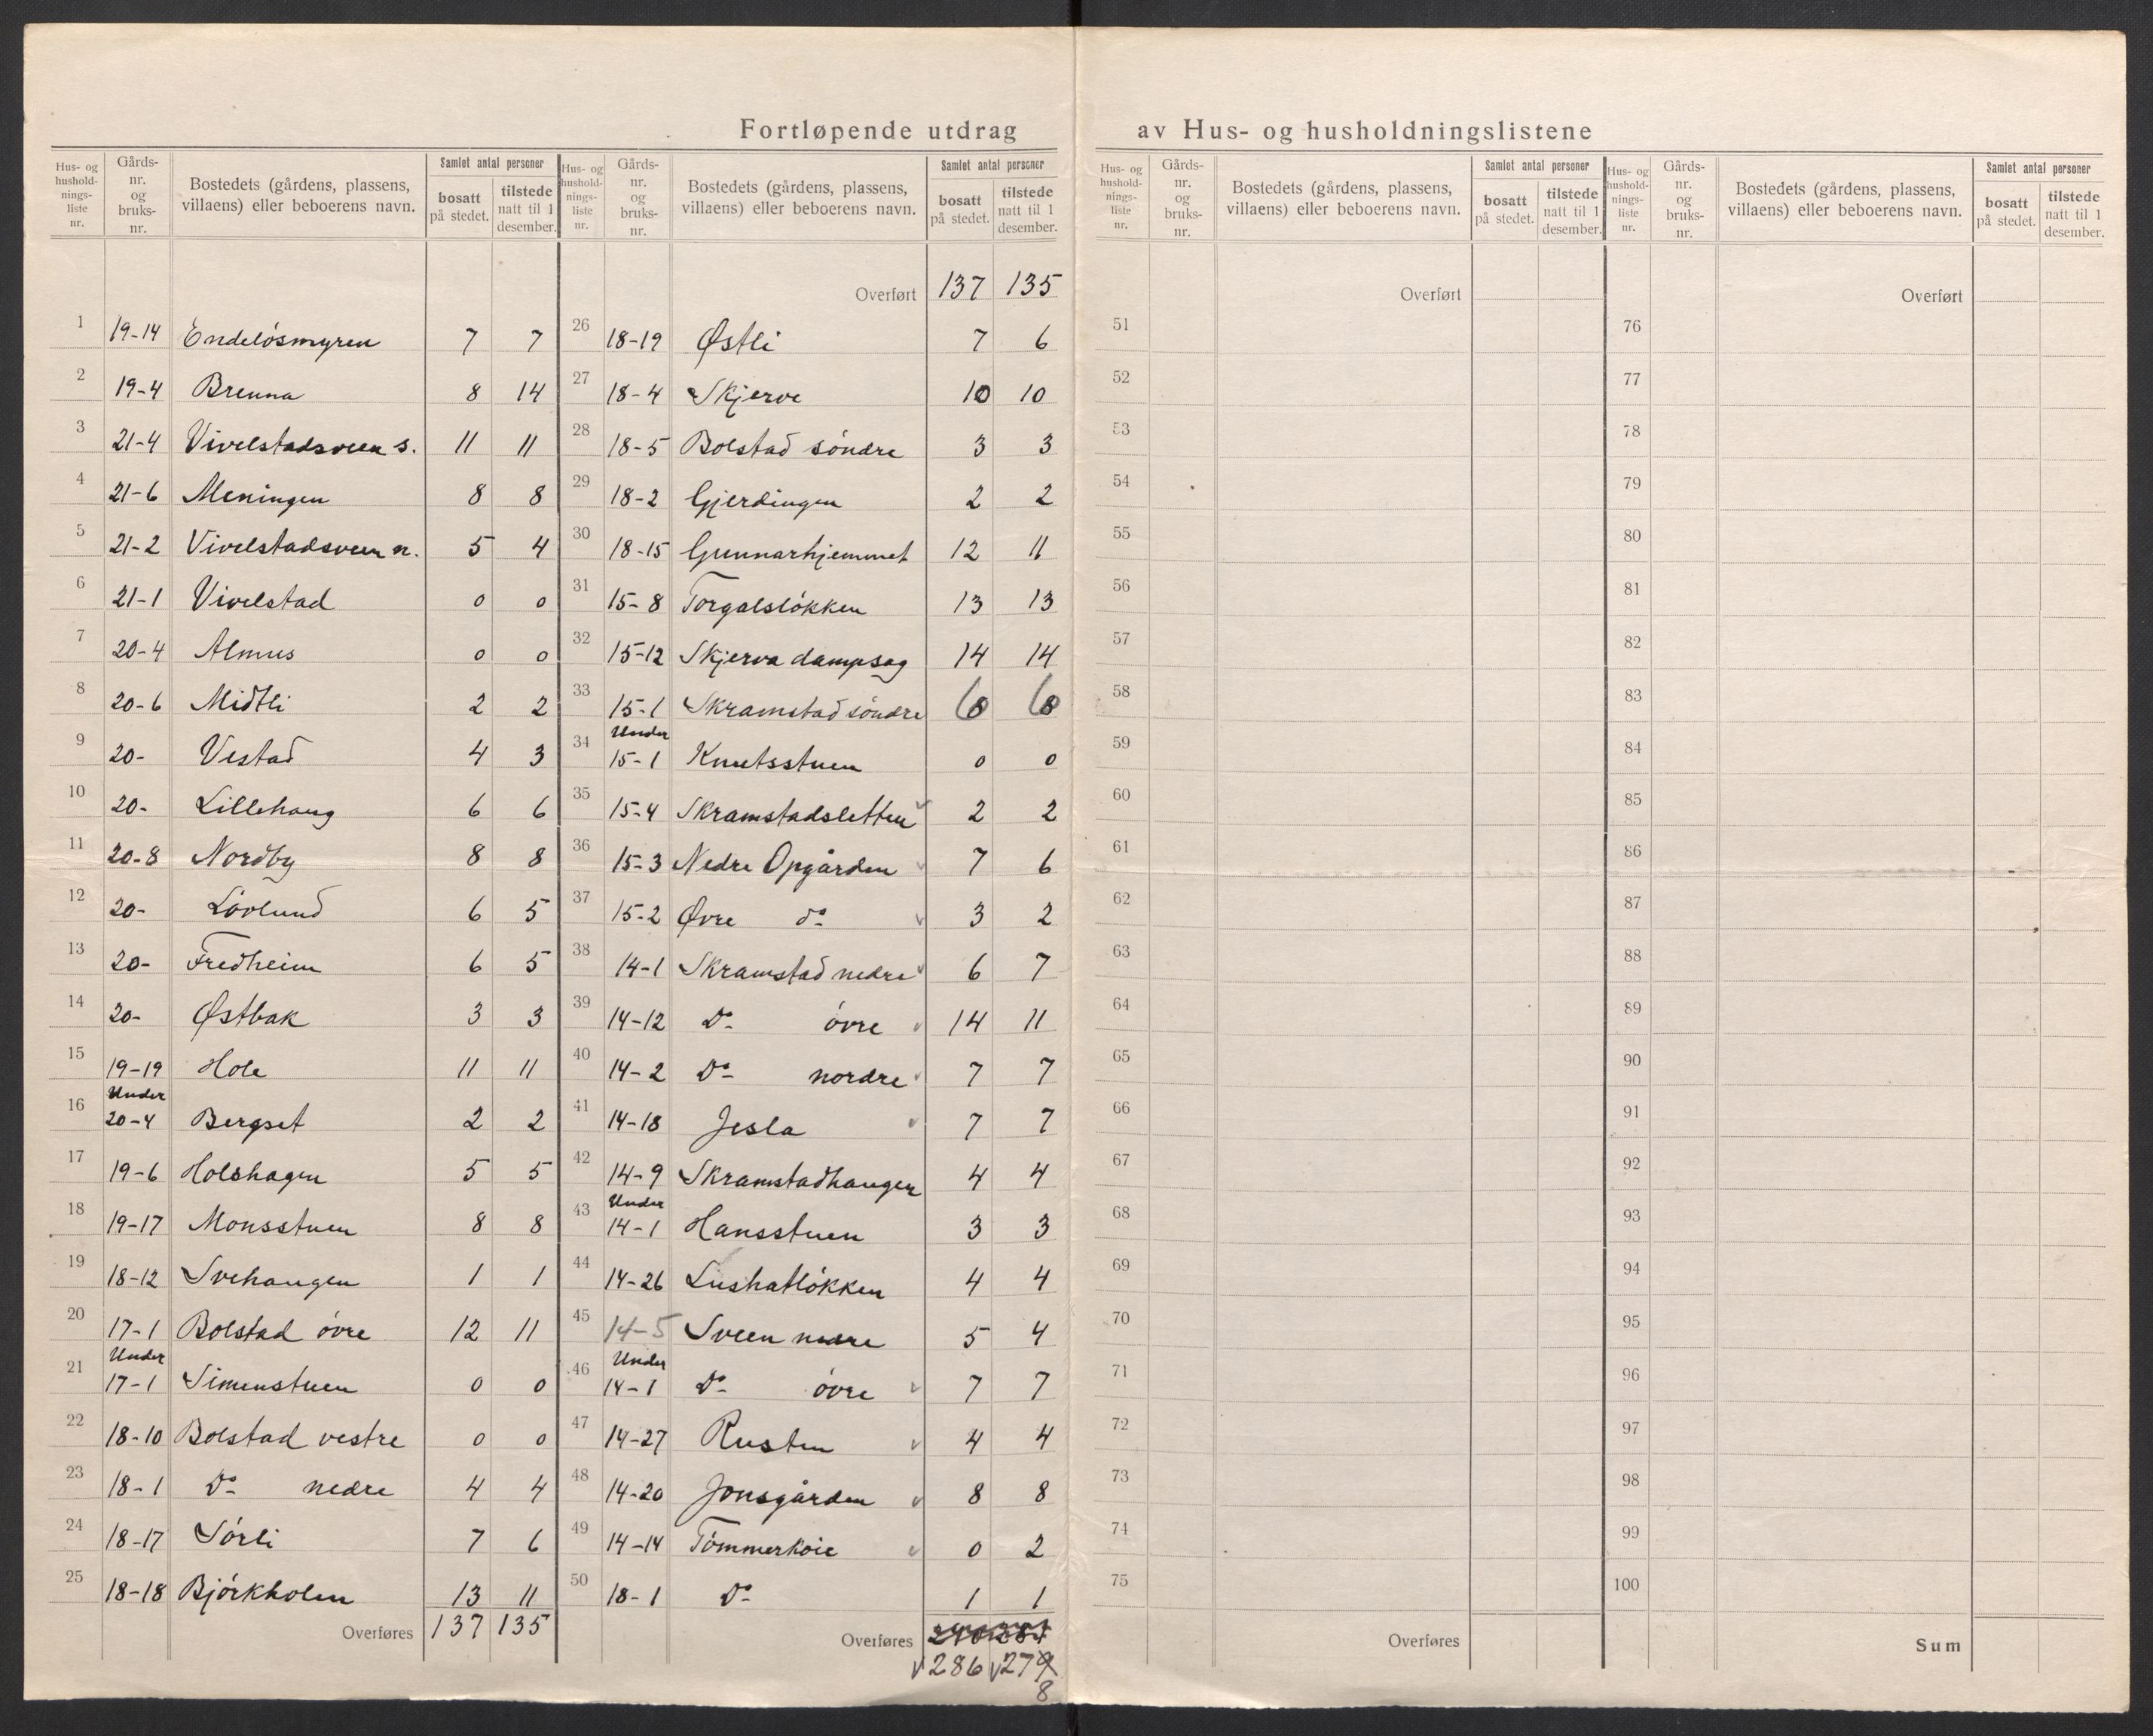 Fortløpende utdrag av Hus- og husholdningslistene
Hus- og hushold-nings-liste nr. | Gårds-nr. og bruks-nr. | Bostedets (gårdens, plassens, villaens) eller beboerens navn. | Samlet antal personer | bosatt på stedet. | tilstede natt til 1 desember.
1 19-14 Endelösmyren 7 7
2 19-4 Brenna 8 14
3 21-4 Vivelstadsveen s. 11 11
4 21-6 Meningen 8 8
5 21-2 Vivelstadsveen n. 5 4
6 21-1 Vivelstad 0 0
7 20-4 Almus 0 0
8 20-6 Midtli 2 2
9 20- Vestad 4 3
10 20- Lillehaug 6 6
11 20-8 Nordby 8 8
12 20- Lövlund 6 5
13 20- Fredheim 6 5
14 20- Østbak 3 3
15 19-19 Hole 11 11
16 Under 20-4 Bergset 2 2
17 19-6 Holshagen 5 5
18 19-17 Monsstuen 8 8
19 18-12 Svehaugen 1 1
20 17-1 Bolstad övre 12 11
21 Under 17-1 Simenstuen 0 0
22 18-10 Bolstad vestre 0 0
23 18-1 Do nedre 4 4
24 18-17 Sörli 7 6
25 18-18 Björkholen 13 11
Overføres 137 135
Hus- og hushold-nings-liste nr. | Gårds-nr. og bruks-nr. | Bostedets (gårdens, plassens, villaens) eller beboerens navn. | Samlet antal personer | bosatt på stedet. | tilstede natt til 1 desember.
Overført 137 135
26 18-19 Østli 7 6
27 18-4 Skjerve 10 10
28 18-5 Bolstad söndre 3 3
29 18-2 Gjerdingen 2 2
30 18-15 Gunnarhjemmet 12 11
31 15-8 Torgalslökken 13 13
32 15-12 Skjerva dampsag 14 14
33 15-1 Skramstad söndre 6 6
34 Under 15-1 Knutsstuen 0 0
35 15-4 Skramstadsletten 2 2
36 15-3 Nedre Opgården 7 6
37 15-2 Øvre do 3 2
38 14-1 Skramstad nedre 6 7
39 14-12 Do övre 14 11
40 14-2 Do nordre 7 7
41 14-18 Jesla 7 7
42 14-9 Skramstadhaugen 4 4
43 Under 14-1 Hansstuen 3 3
44 14-26 Lushatlökken 4 4
45 14-5 Sveen nedre 5 4
46 Under 14-1 Do övre 7 7
47 14-27 Rusten 4 4
48 14-20 Jonsgården 8 8
49 14-14 Tömmerkoie 0 2
50 18-1 Do 1 1
Overføres
286 279
8
Hus- og hushold-nings-liste nr. | Gårds-nr. og bruks-nr. | Bostedets (gårdens, plassens, villaens) eller beboerens navn. | Samlet antal personer | bosatt på stedet. | tilstede natt til 1 desember.
Overført
51
52
53
54
55
56
57
58
59
60
61
62
63
64
65
66
67
68
69
70
71
72
73
74
75
Overføres
Hus- og hushold-nings-liste nr. | Gårds-nr. og bruks-nr. | Bostedets (gårdens, plassens, villaens) eller beboerens navn. | Samlet antal personer | bosatt på stedet. | tilstede natt til 1 desember.
Overført
76
77
78
79
80
81
82
83
84
85
86
87
88
89
90
91
92
93
94
95
96
97
98
99
100
Sum